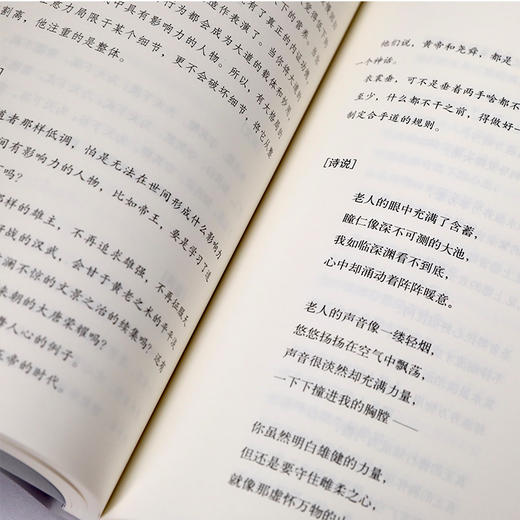 意力局限于某个细节，更不会破坏细节，将它从整
割离，他注重的是整体。
道者那样低调，怕是无法在世间形成什么影响力
间有影响力的人物，比如帝王，要是学习了这
吗？
那样的雄主，不再追求雄强，不再征服天
善战的汉武，会甘于黄老之术的平平淡
澜不惊的文景之治的续集吗？还有
来朝的大唐荣耀吗？
人心的例子。
帝的时代。
他们说，黄帝和尧舜，都是
一个神话。
衣裳垂，可不是垂着两手啥都不
至少，什么都不干之前，得做好一
制定合乎道的规则。
[诗说]
老人的眼中充满了含蓄，
瞳仁像深不可测的大池，
我如临深渊看不到底，
心中却涌动着阵阵暖意。
老人的声音像一缕轻烟，
悠悠扬扬在空气中飘荡，
声音很淡然却充满力量，
一下下撞进我的胸膛——
你虽然明白雄健的力量，
但还是要守住雌柔之心，
就像那虚怀万物的山